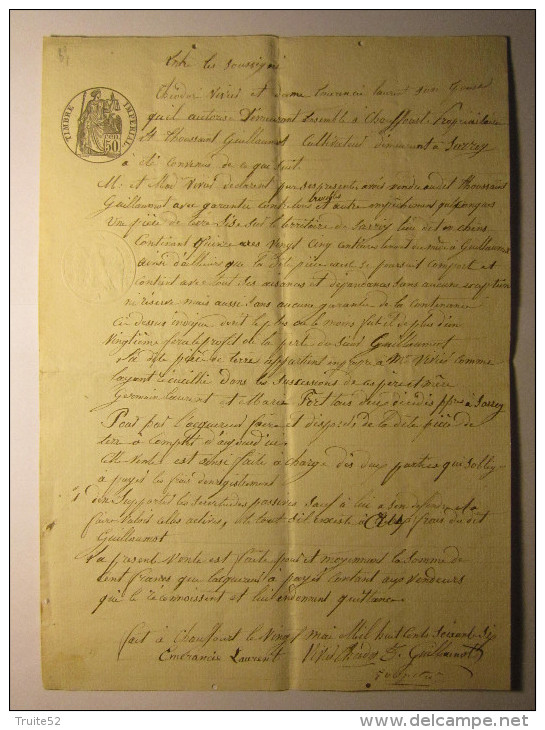 Entre les soussignés
Théodor Viver et dame Emerancie Laurent son épouse
qu'il autorise Demeurant Ensemble à Chauffourt Propriétaires
Et Thoussaint Guillaumot Cultivateur demeurant à Sarrey
à été Convenu de ce que suit.
TIMBRE IMPERIAL
50
M. et Mad Viver déclarent par ses présentes avoir vendu audit Thoussaint
Guillaumot avec garantie contre tous troubles et autre empêchement quelconques
Une pièce de terre Sise sur le territoire de Sarrey lieu dit en
Contenant quinze ares Vingt Cinq Centiares
ainsi d'ailleurs que la dite pièce se poursuit comport et
contient avec tout ses aisances et dépendances Sans aucune exception
ni réserve mais aussi sans aucune garantie de la Contenance
Ci dessus le plus ou le moins fut il de plus d'un
Vingtième fera le profit ou la perte du Sieur Guillaumot
pièce de terre appartient à Mme Viver Comme
l'ayant recueillie dans les Successions de ses père et mère
Germain Laurent et Marie tous deux décédés à Sarrey
Pour par l'acquéreur faire et disposer de la dite pièce de
terre à Compter d'aujourd'hui
Cette Vente est ainsi faite à charge des deux parties qui s'oblige
à payer les frais d'enregistrement
1° d'en Supporter les Servitudes passives sauf à lui à s'en défendre et à
faire Valoir celles actives, et le tout s'il existe à frais du dit
Guillaumot
La présente Vente est faite pour et moyennant la Somme de
Cent francs que l'acquéreur à payer Contant aux Vendeurs
qui le reconnoissent et lui en donnent quittance.
fait à Chauffourt le Vingt Mai Mil huit Cents Soixante Dix
Emerancie Laurent Viver Théodor T. Guillaumot
Truite52
www.delcampe.net